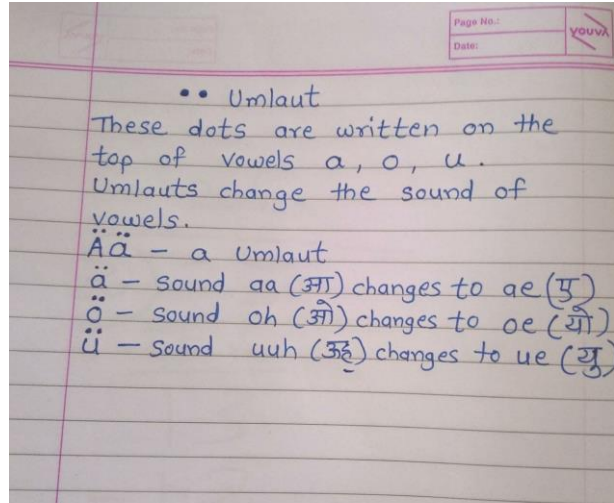 Page No.:
Date:
YOUVA
•• Umlaut
These dots are written on the
top of vowels a, o, u.
Umlauts change the sound of
vowels.
Ää – a Umlaut
ä – Sound aa (आ) changes to ae (ए)
ö – Sound oh (ओ) changes to oe (यो)
ü – Sound uuh (ऊह्) changes to ue (यु)